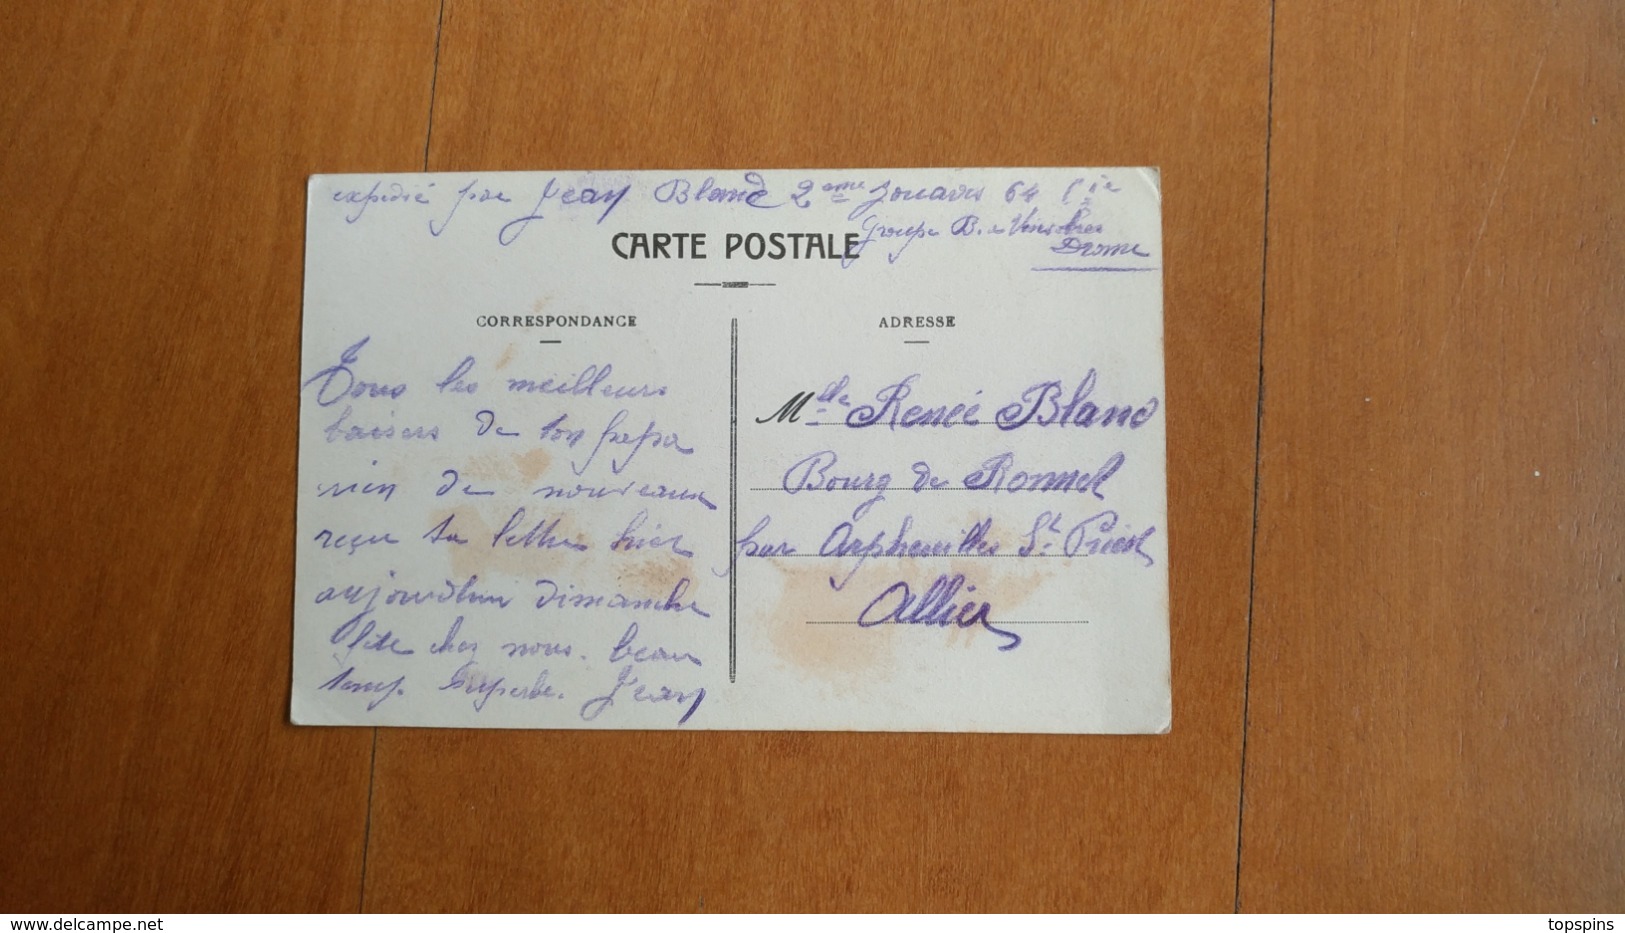 expedié par Jean Blanc 2eme Zouaves 64 Cie
Groupe B. à Vinsobres
Drome
CARTE POSTALE
CORRESPONDANCE
ADRESSE
Tous les meilleurs
baisers de ton papa
rien de nouveaux
reçu ta lettre hier
aujourdhui dimanche
fete chez nous. beau
temp. superbe. Jean
Mlle Reneé Blanc
Bourg de Ronnet
par Arpheuilles St Priest
Allier
www.delcampe.net
topspins